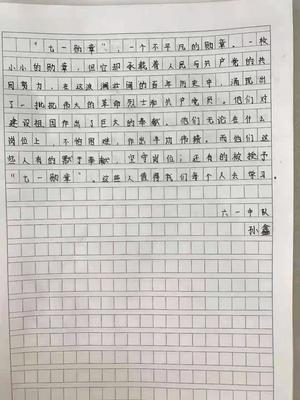 "七一勋章",一个不平凡的勋章。一枚
小小的勋章,但它却承载着人民与共产党的共
同努力,在这波澜壮阔的百年历史中,涌现出
了一批批伟大的革命烈士和共产党员。他们对
建设祖国作出了巨大的奉献。他们无论在什么
岗位上,不怕困难,作出丰功伟绩。而他们这
些人有的默于奉献,坚守岗位;还有的被授予
"七一勋章"。这些人值得我们每个人去学习
六一中队
孙鑫